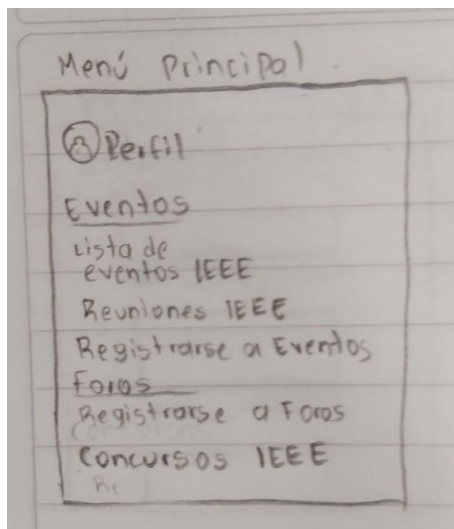 Menú Principal
Perfil
Eventos
Lista de
eventos IEEE
Reuniones IEEE
Registrarse a Eventos
Foros
Registrarse a Foros
Concursos IEEE